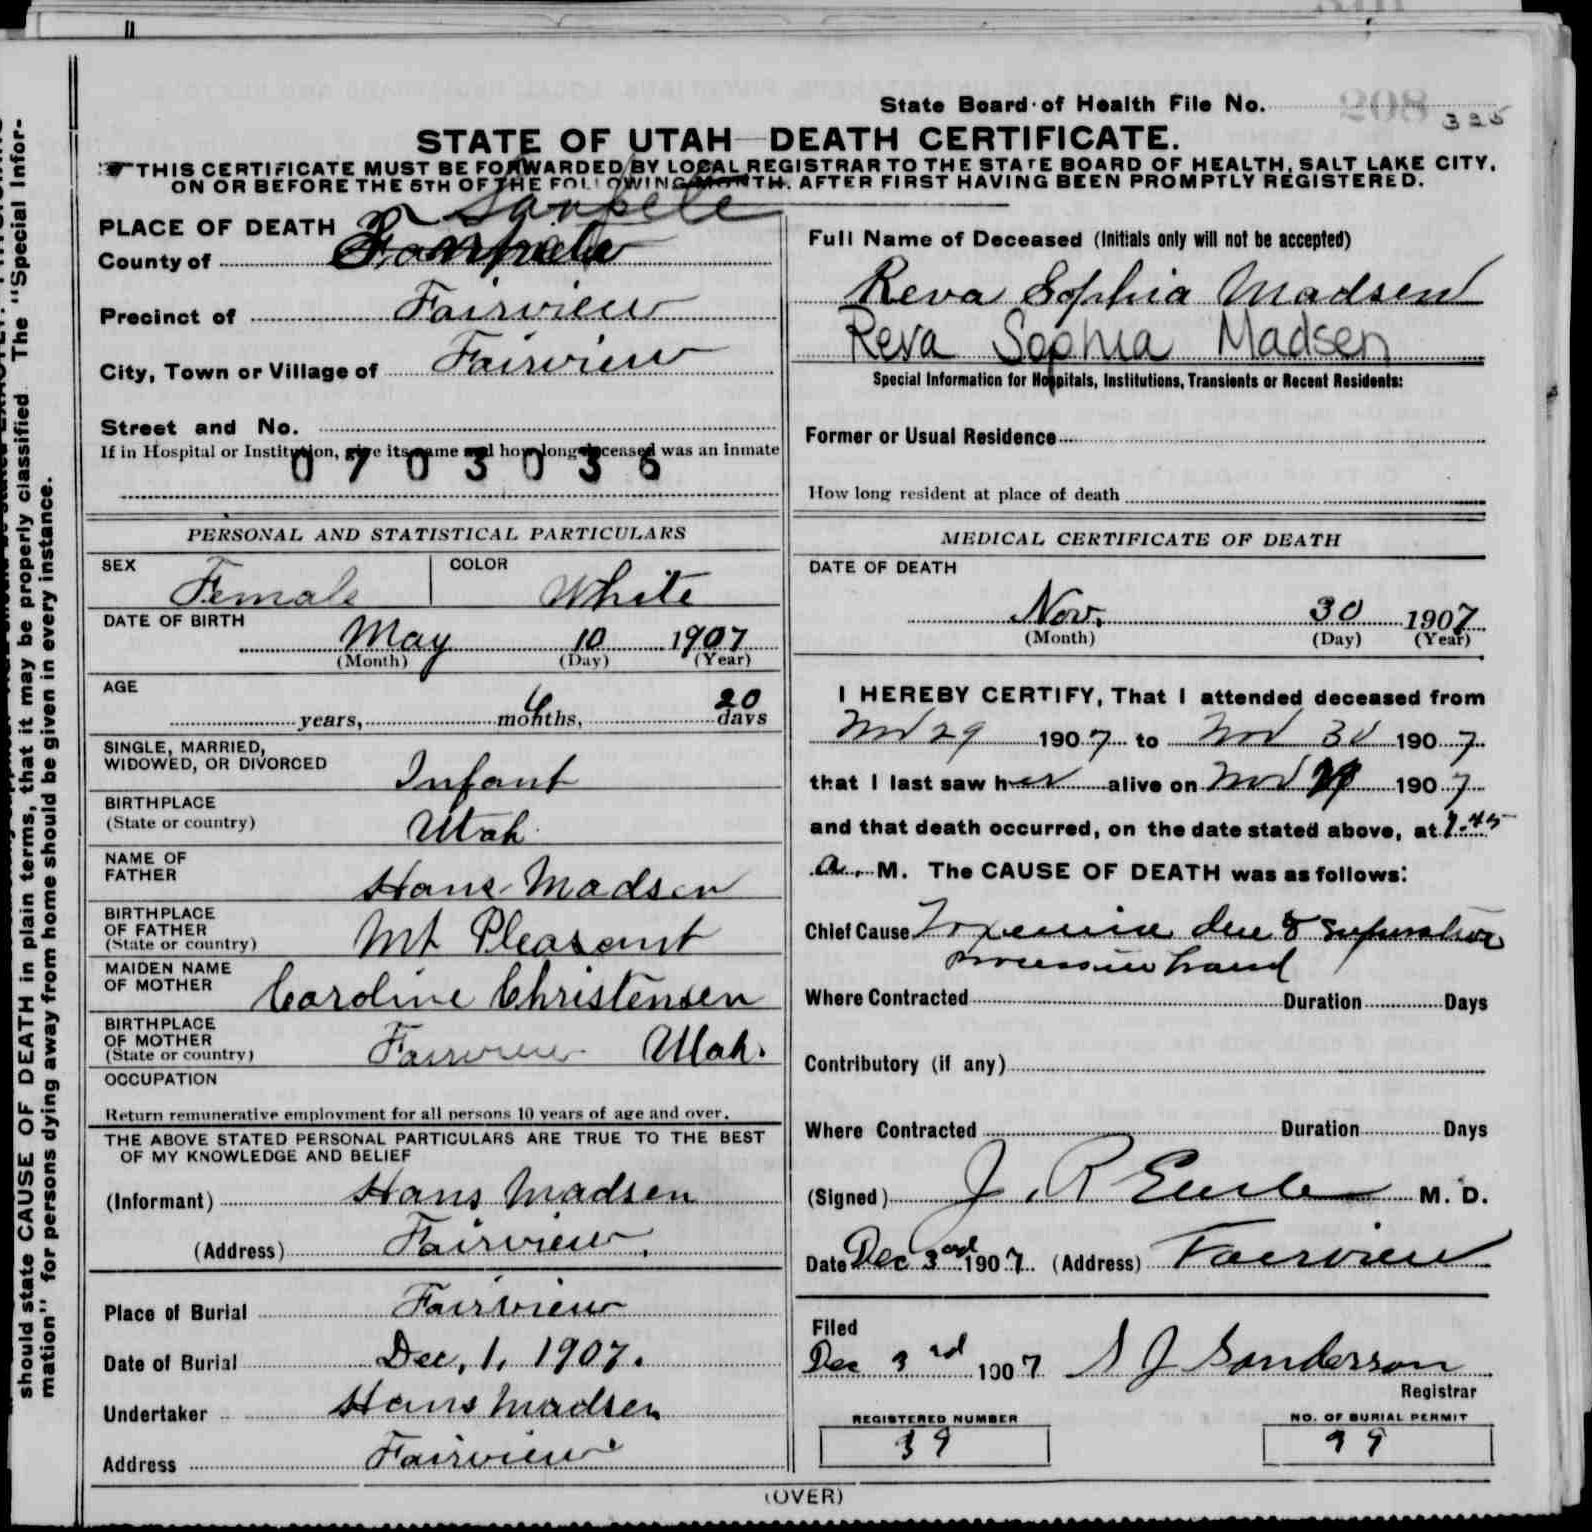 should state CAUSE OF DEATH in plain terms, that it may be properly classified. The "Special Infor-
mation" for persons dying away from home should be given in every instance.
State Board of Health File No. 208 325
STATE OF UTAH—DEATH CERTIFICATE.
THIS CERTIFICATE MUST BE FORWARDED BY LOCAL REGISTRAR TO THE STATE BOARD OF HEALTH, SALT LAKE CITY,
ON OR BEFORE THE 5TH OF THE FOLLOWING MONTH, AFTER FIRST HAVING BEEN PROMPTLY REGISTERED.
PLACE OF DEATH
County of Sanpete
Precinct of Fairview
City, Town or Village of Fairview
Street and No.
If in Hospital or Institution, give its name and how long deceased was an inmate
0703036
Full Name of Deceased (Initials only will not be accepted)
Reva Sophia Madsen
Reva Sophia Madsen
Special Information for Hospitals, Institutions, Transients or Recent Residents:
Former or Usual Residence
How long resident at place of death
PERSONAL AND STATISTICAL PARTICULARS
SEX Female COLOR White
DATE OF BIRTH
May 10 1907
(Month) (Day) (Year)
AGE
years, 6 months, 20 days
SINGLE, MARRIED,
WIDOWED, OR DIVORCED Infant
BIRTHPLACE
(State or country) Utah
NAME OF
FATHER Hans Madsen
BIRTHPLACE
OF FATHER
(State or country) Mt Pleasant
MAIDEN NAME
OF MOTHER Caroline Christensen
BIRTHPLACE
OF MOTHER
(State or country) Fairview Utah.
OCCUPATION
Return remunerative employment for all persons 10 years of age and over.
THE ABOVE STATED PERSONAL PARTICULARS ARE TRUE TO THE BEST
OF MY KNOWLEDGE AND BELIEF
(Informant) Hans Madsen
(Address) Fairview.
Place of Burial Fairview
Date of Burial Dec, 1, 1907.
Undertaker Hans Madsen
Address Fairview
MEDICAL CERTIFICATE OF DEATH
DATE OF DEATH
Nov. 30 1907
(Month) (Day) (Year)
I HEREBY CERTIFY, That I attended deceased from
Nov 29 1907 to Nov 30 1907
that I last saw her alive on Nov 1907
and that death occurred, on the date stated above, at
a. M. The CAUSE OF DEATH was as follows:
Chief Cause Toxemia due to Supurative
process in hand
Where Contracted Duration Days
Contributory (if any)
Where Contracted Duration Days
(Signed) J. R M. D.
Date Dec 3rd 1907 (Address) Fairview
Filed
Dec 3rd 1907 S J Sanderson
Registrar
REGISTERED NUMBER
39
NO. OF BURIAL PERMIT
99
(OVER)